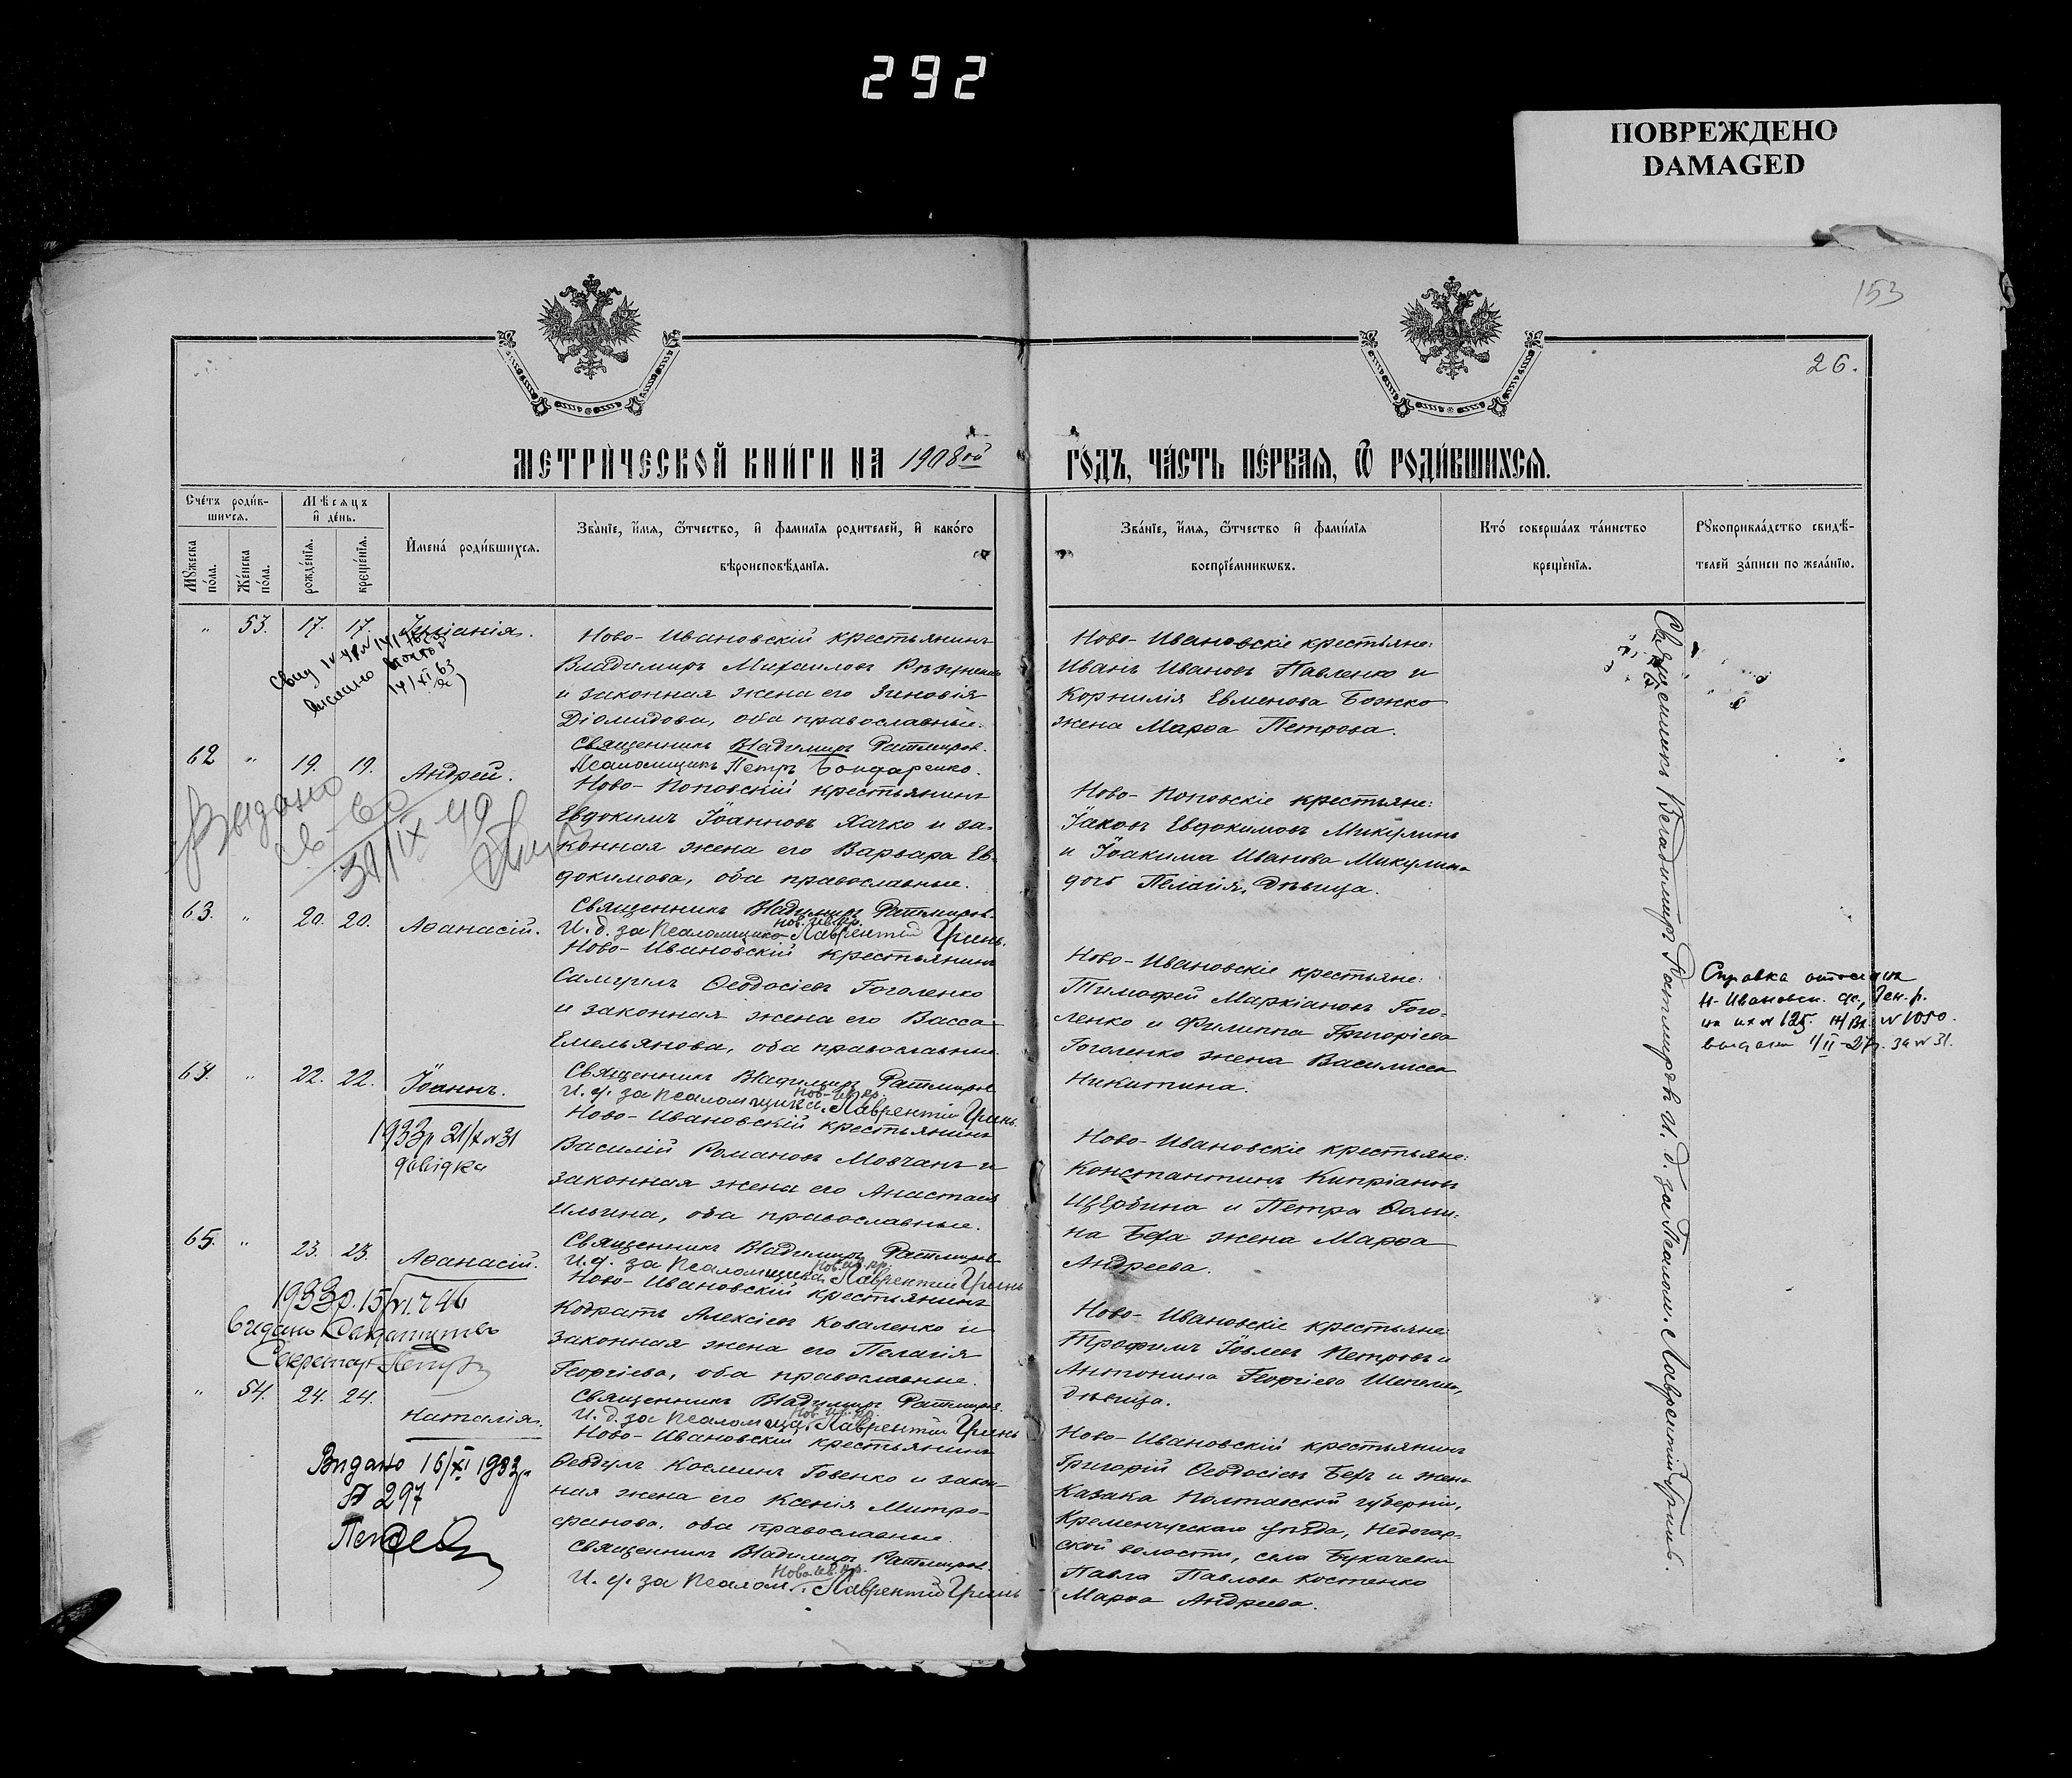 292
ПОВРЕЖДЕНО
DAMAGED
153
26.
МЕТРИ́ЧЕСКОЙ КНИ́ГИ НА 1908ой ГОДЪ, ЧА́СТЬ ПЕ́РВАЯ, Ѿ РОДИ́ВШИХСЯ.
Сче́тъ роди́вшихся.
Му́жеска по́ла.
Же́нска по́ла.
Мѣ́сяцъ и де́нь.
рожде́нія.
креще́нія.
Имена́ роди́вшихся.
Зва́ніе, и́мя, ѻ҆́тчество, и фами́лія родителей, и како́го
вѣроисповѣ́данія.
Зва́ніе, и́мя, ѻ҆́тчество и фами́лія
воспріе́мниковъ.
Кто́ соверша́лъ та́инство
креще́нія.
Рукоприкла́дство свидѣ́-
телей за́писи по жела́нію.
" 53. 17. 17.
Ново-Ивановскій крестьянинъ
Владимиръ Михаиловъ
и законная жена его Зиновія
Діомидова, оба православные.
Священникъ Владимиръ Ратмировъ.
Псаломщикъ Петръ Бондаренко.
Ново-Ивановскіе крестьяне:
Иванъ Ивановъ Павленко и
Корнилія Евменова Божко
жена Марѳа Петрова.
62 " 19. 19. Андрей.
Выдано
Ново-Поповскій крестьянинъ
Евдокимъ Іоанновъ Хачко и за-
конная жена его Варвара Ев-
докимова, оба православные.
Священникъ Владимиръ Ратмировъ.
И. д. за Псаломщика Нов. Ив. кр. Лаврентій Гринь.
Ново-Поповскіе крестьяне:
Іаковъ Евдокимовъ Микулинъ
и Іоакима Иванова Микулина
дочь Пелагія, дѣвица.
63. " 20. 20. Аѳанасій.
Ново-Ивановскій крестьянинъ
Самуилъ Ѳеодосіевъ Гоголенко
и законная жена его Васса
Емельянова, оба православные.
Священникъ Владимиръ Ратмировъ
И. д. за Псаломщика Нов-Ив. кр. Лаврентій Гринь.
Ново-Ивановскіе крестьяне:
Тимофей Маркіановъ Гого-
ленко и Филиппа Григоріева
Гоголенко жена Василисса
Никитина.
Н-Ивановск.
64. " 22. 22. Іоаннъ.
1933р 21/X №31
довідка
Ново-Ивановскій крестьянинъ
Василій Романовъ Мовчанъ и
законная жена его Анастасія
Ильина, оба православные.
Священникъ Владимиръ Ратмировъ
И. д. за Псаломщика Нов. Ив. кр. Лаврентій Гринь
Ново-Ивановскіе крестьяне:
Константинъ Кипріановъ
Щербина и Петра Ѳоми-
на Беха жена Марѳа
Андреева.
65. " 23. 23. Аѳанасій.
Секретар
Ново-Ивановскій крестьянинъ
Кодратъ Алексіевъ Коваленко и
законная жена его Пелагія
Георгіева, оба православные.
Священникъ Владимиръ Ратмировъ.
И. д. за Псаломща. Нов. Ив. кр. Лаврентій Гринь
Ново-Ивановскіе крестьяне:
Трофимъ Іовлевъ Петровъ и
Антонина Георгіева
дѣвица.
" 54. 24. 24. Наталія.
Видано 16/XI 1933р
№ 297
Ново-Ивановскій крестьянинъ
Ѳеодулъ Косминъ Говенко и закон-
ная жена его Ксенія Митро-
фанова, оба православные.
Священникъ Владимиръ Ратмировъ.
И. д. за Псалом. Ново-Ив. кр. Лаврентій Гринь
Ново-Ивановскій крестьянинъ
Григорій Ѳеодосіевъ Бехъ и жена
Казака Полтавской губерніи,
Кременчугскаго уѣзда, Недогар-
ской волости, села Букачевки
Павла Павлова Костенко
Марѳа Андреева.
Священникъ Владимиръ Ратмировъ И. д. за Псалом. Лаврентій Гринь.